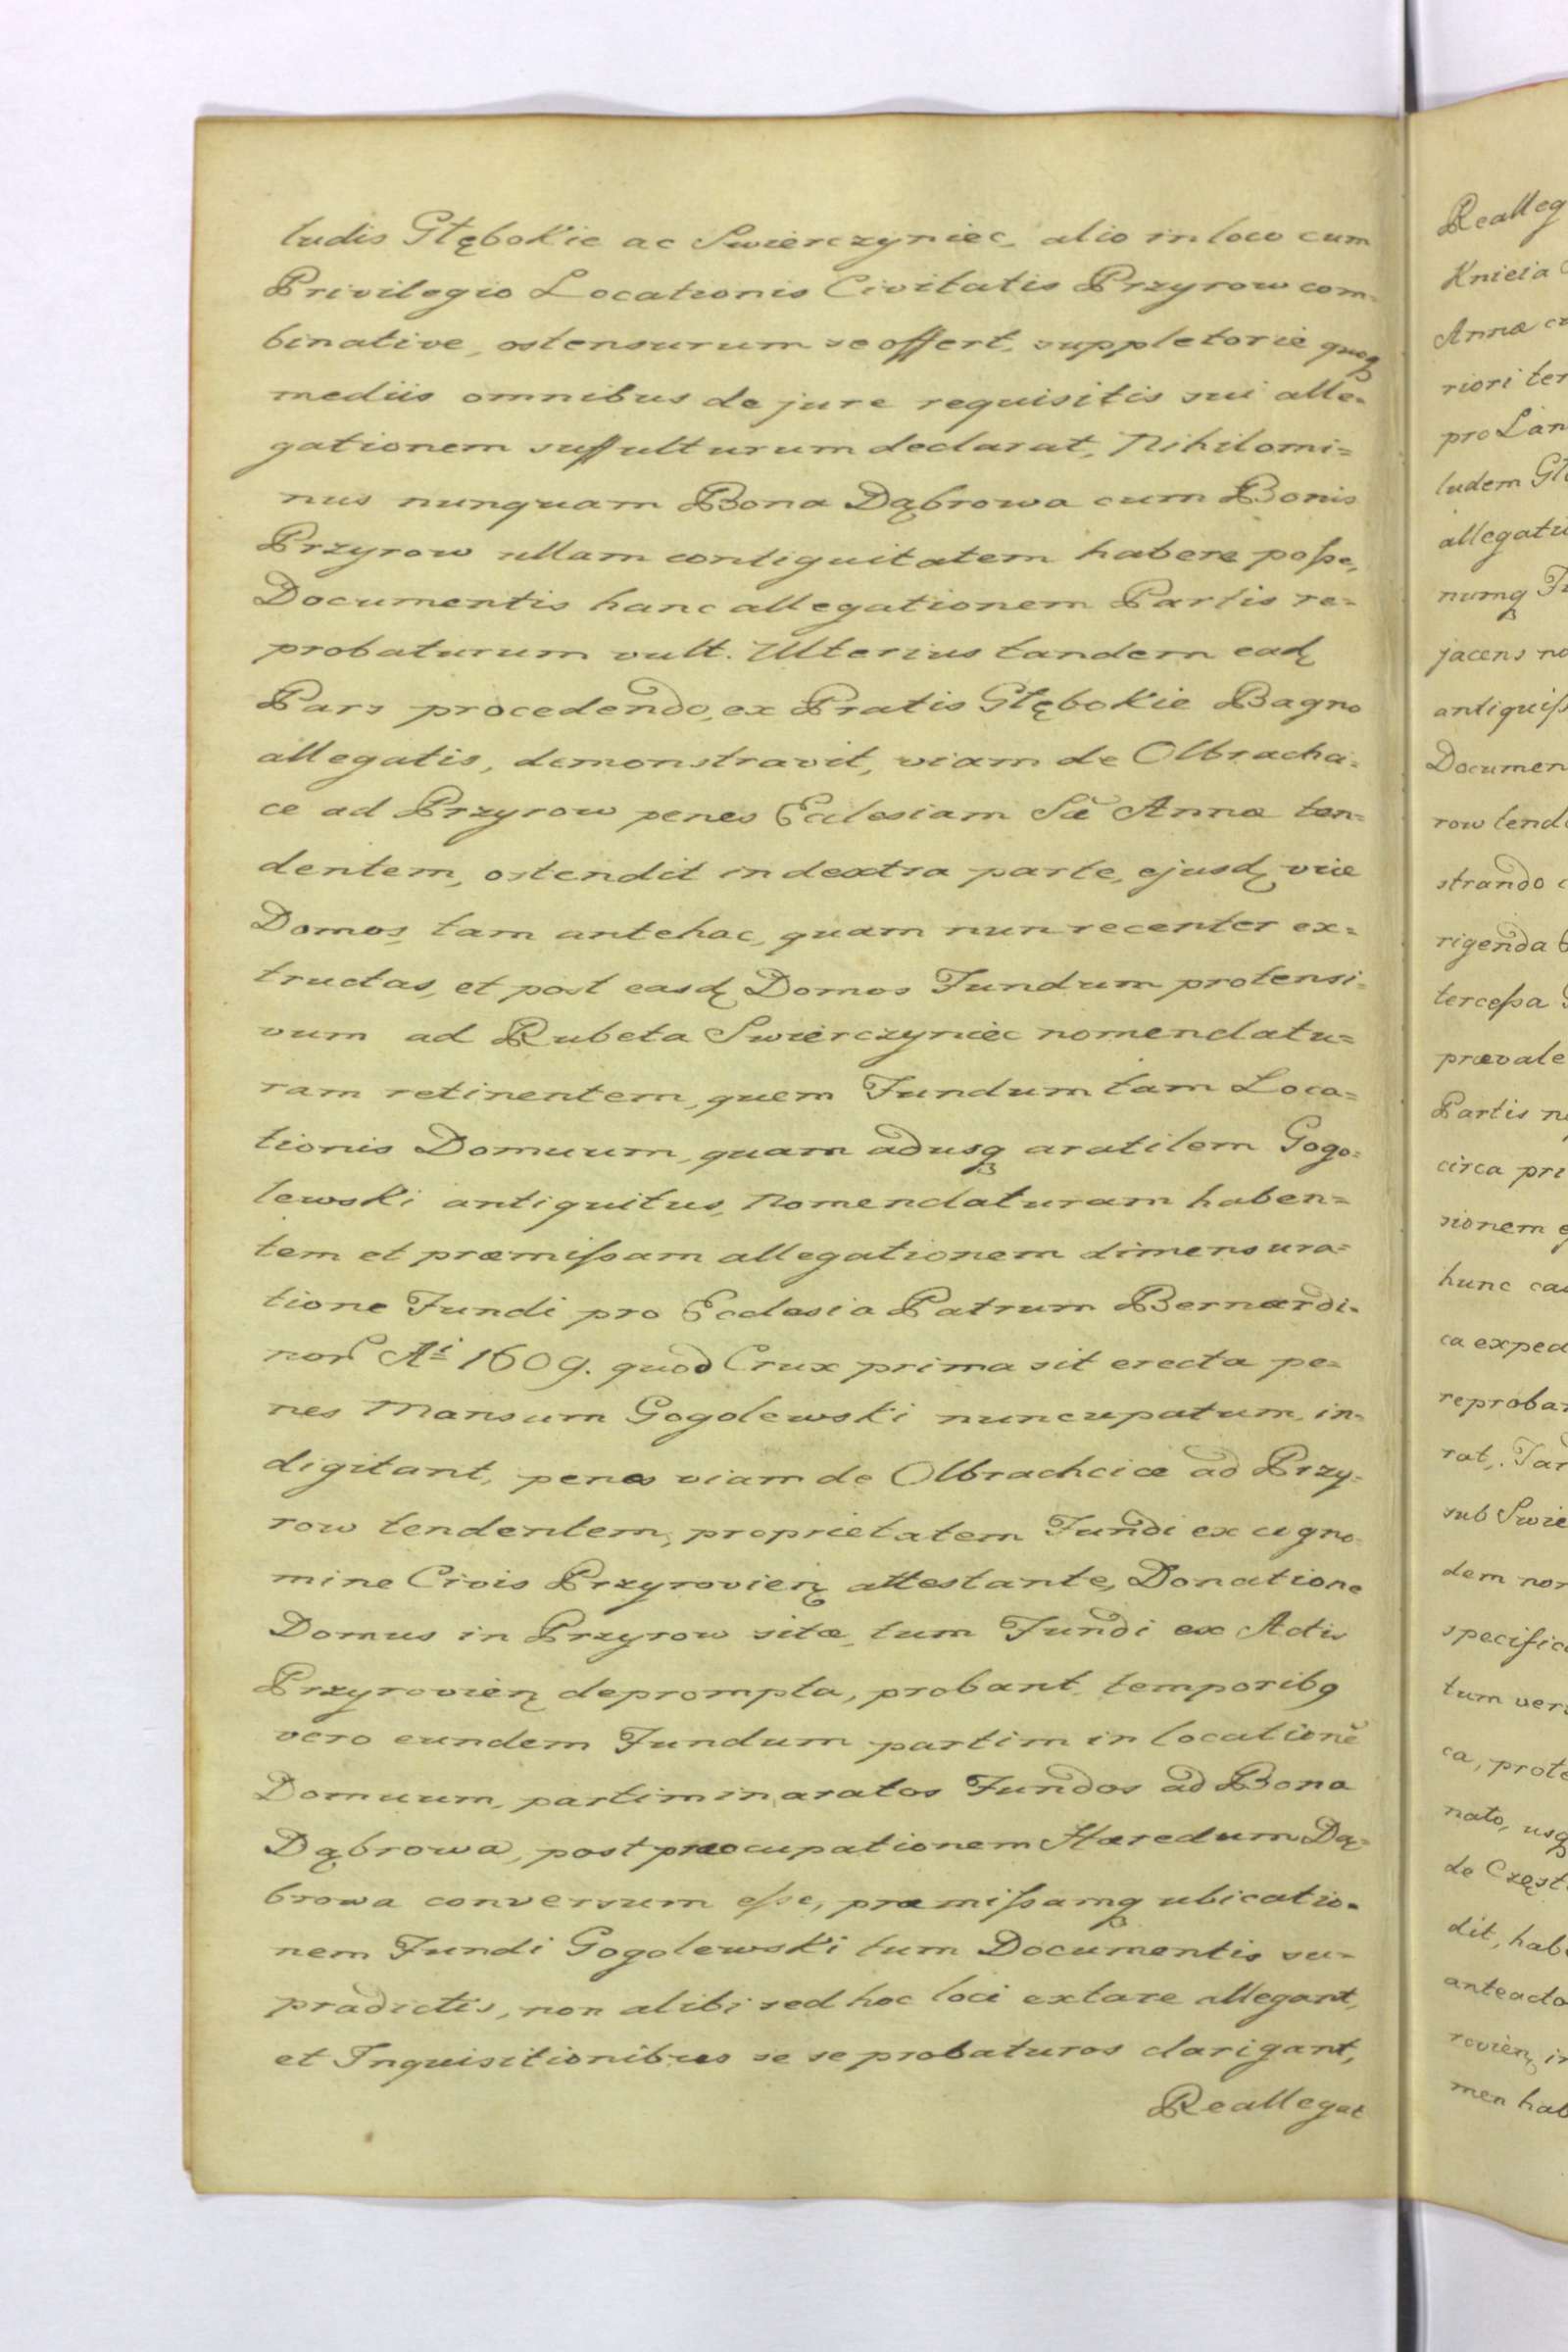 ludis Głębokie ac Swierczyniec, alio in loco cum
Privilegio Locationis Civitatis Przyrow com=
binative, ostensurum se offert, suppletorie quoq
mediis omnibus de jure requisitis sui alle=
gationem suffulturum declarat, Nihilomi=
nus nunquam Bona Dąbrowa cum Bonis
Przyrow ullam contiguitatem habere poſse,
Documentis hanc allegationem Partis re=
probaturum vult. Ulterius tandem ead
Pars procedendo, ex Pratis Głębokie Bagno
allegatis, demonstravit, viam de Olbracha=
ce ad Przyrow penes Eclesiam Sæ Annæ ten=
dentem, ostendit in dextra parte, ejusd viæ
Domos, tam antehac, quam nun recenter ex=
tructas, et post easd Domos Fundum protensi=
vum ad Rubeta Swierczyniec nomenclatu=
ram retinentem, quem Fundum tam Loca=
tionis Domuum, quam adusq aratilem Gogo=
lewski antiquitus, Nomenclaturam haben=
tem et præmiſsam allegationem dimensura=
tione Fundi pro Ecclesia Patrum Bernardi=
nor Ai 1609. quod Crux prima sit erecta pe=
nes Mansum Gogolewski nuncupatum, in=
digitant, penes viam de Olbrachcice ad Przy=
row tendentem, proprietatem Fundi ex cogno=
mine Civis Przyrovien attestante, Donatione
Domus in Przyrow sitæ, tum Fundi ex Actis
Przyrovien deprompta, probant, temporibq
vero eundem Fundum partim in locationē
Domuum, partim in aratos Fundos ad Bona
Dąbrowa, post præocupationem Hæredum Dą=
browa conversum eſse, præmiſsamq ubicatio=
nem Fundi Gogolewski tum Documentis su=
pradictis, non alibi sed hoc loci extare allegant,
et Inquisitionibus se se probaturos clarigant,
Reallegat
Realleg
Annæ
riori ter
pro Lan
ludem Głę
allegati
numq Fu
jacens no
antiquiſs
Documen
row tend
strando c
rigenda
terceſsa
prævale
Partis n
circa pri
sionem
hunc ca
ca exped
reproba
rat, Tan
sub Swie
dem non
specific
tum ver
ca, prote
nato, usq
de Częst
dit, hab
anteacto
rovien, in
men hab